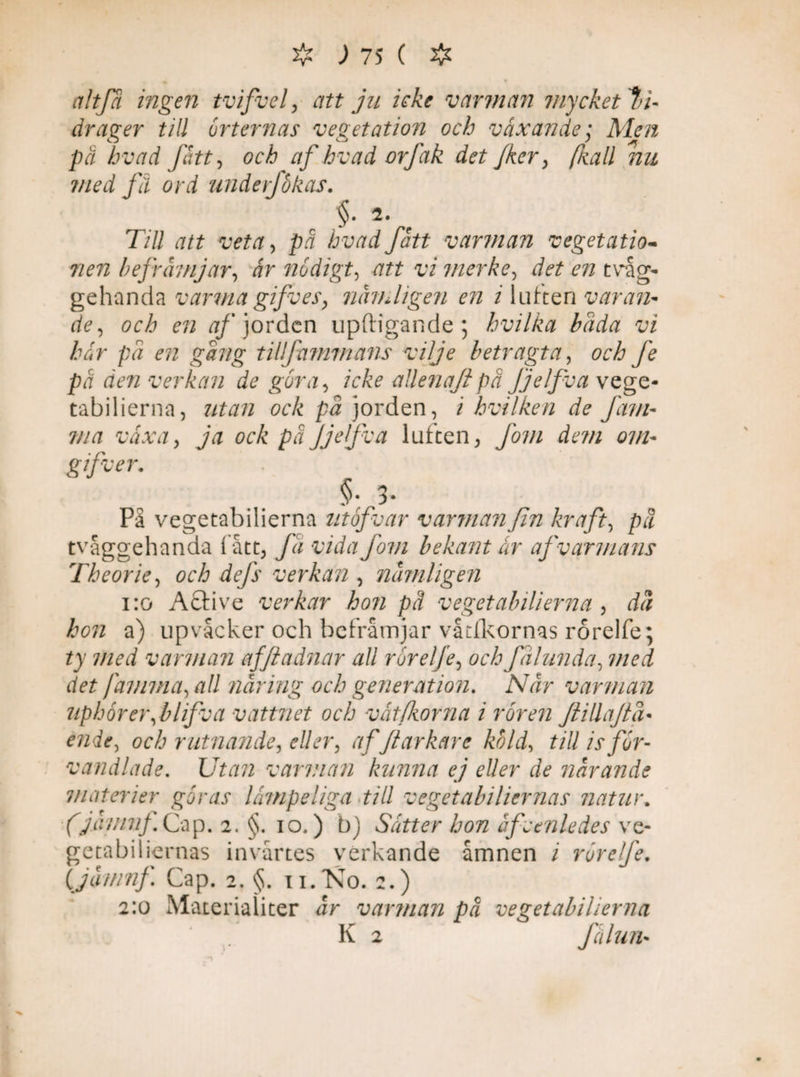 ☼ ) 75 ( ☼
altſå ingen tvifvel, att ju icke varman mycket bi-
drager till örternas vegetation och våxande; Men
på hvad ſått, och af hvad orſak det ſker, ſkall nu
med få ord underſökas.
§. 2.
Till att veta, på hvad ſått varman vegetatio-
nen befråmjar, år nödigt, att vi merke, det en tvåg-
gehanda varma gifves, nåmligen en i luften varan-
de, och en af jorden upſtigande; hvilka båda vi
hår på en gång tillſammans vilje betragta, och ſe
på den verkan de göra, icke allenaſt på ſjelfva vege-
tabilierna, utan ock på jorden, i hvilken de ſam-
ma våxa, ja ock på ſjelfva luften, ſom dem om-
gifver.
§. 3.
På vegetabilierna utöfvar varman ſin kraft, på
tvåggehanda ſått, ſå vida ſom bekant år af varmans
Theorie, och deſs verkan, nåmligen
1:o Active verkar hon på vegetabilierna, då
hon a) upvåcker och befråmjar våtſkornas rörelſe;
ty med varman afſtadnar all rörelſe, och ſålunda, med
det ſamma, all nåring och generation. Når varman
uphörer, blifva vattnet och våtſkorna i rören ſtillaſtå-
ende, och rutnande, eller, af ſtarkare köld, till is för-
vandlade. Utan varman kunna ej eller de nårande
materier göras låmpeliga till vegetabiliernas natur.
(jåmnf. Cap. 2. §. 10.) b) Såtter hon åfvenledes ve-
getabiliernas invårtes verkande åmnen i rörelſe.
(jåmnf. Cap. 2. §. 11. No. 2.)
2:o Materialiter år varman på vegetabilierna
K 2 ſålun-